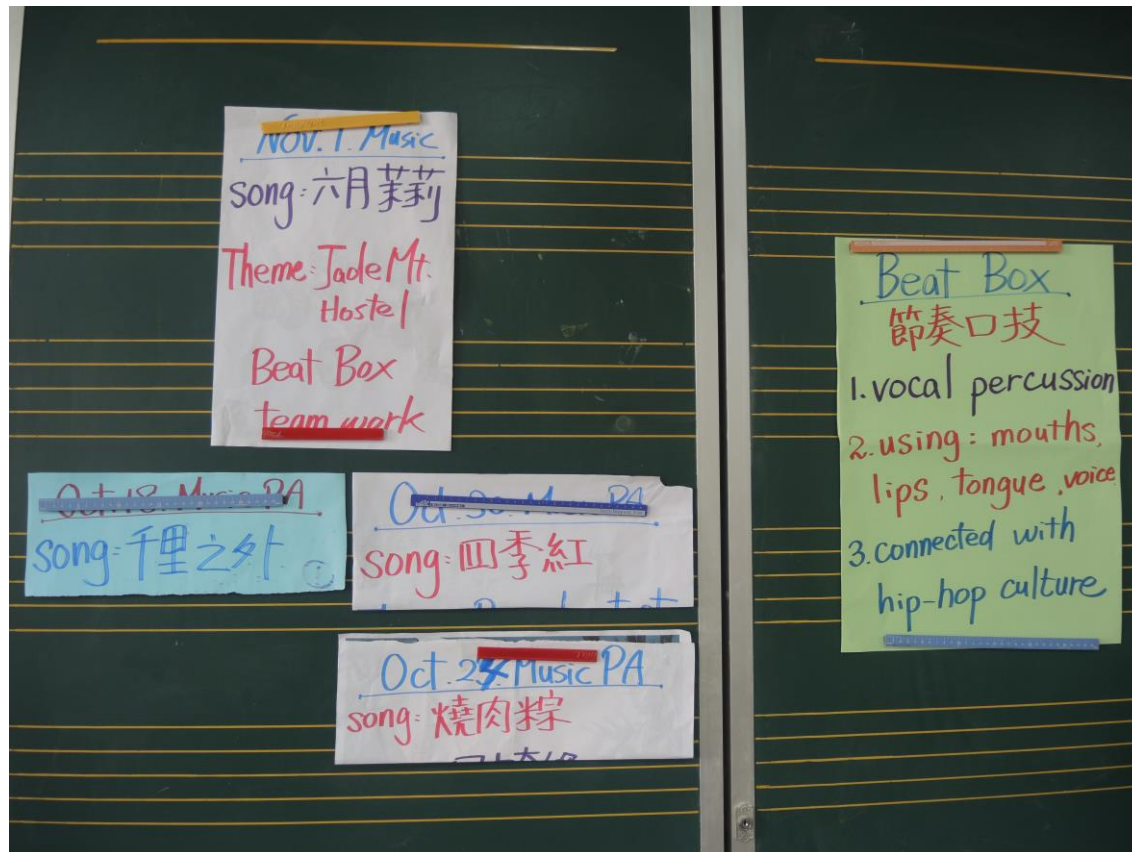 NOV. 1. Music
song: 六月茉莉
Theme: Jade Mt.
Hostel
Beat Box
team work
Oct. 18. Music PA
song: 千里之外
Oct. 30. Music PA
song: 四季紅
Oct. 24. Music PA
song: 燒肉粽
Beat Box
節奏口技
1. vocal percussion
2. using: mouths,
lips, tongue, voice
3. connected with
hip-hop culture